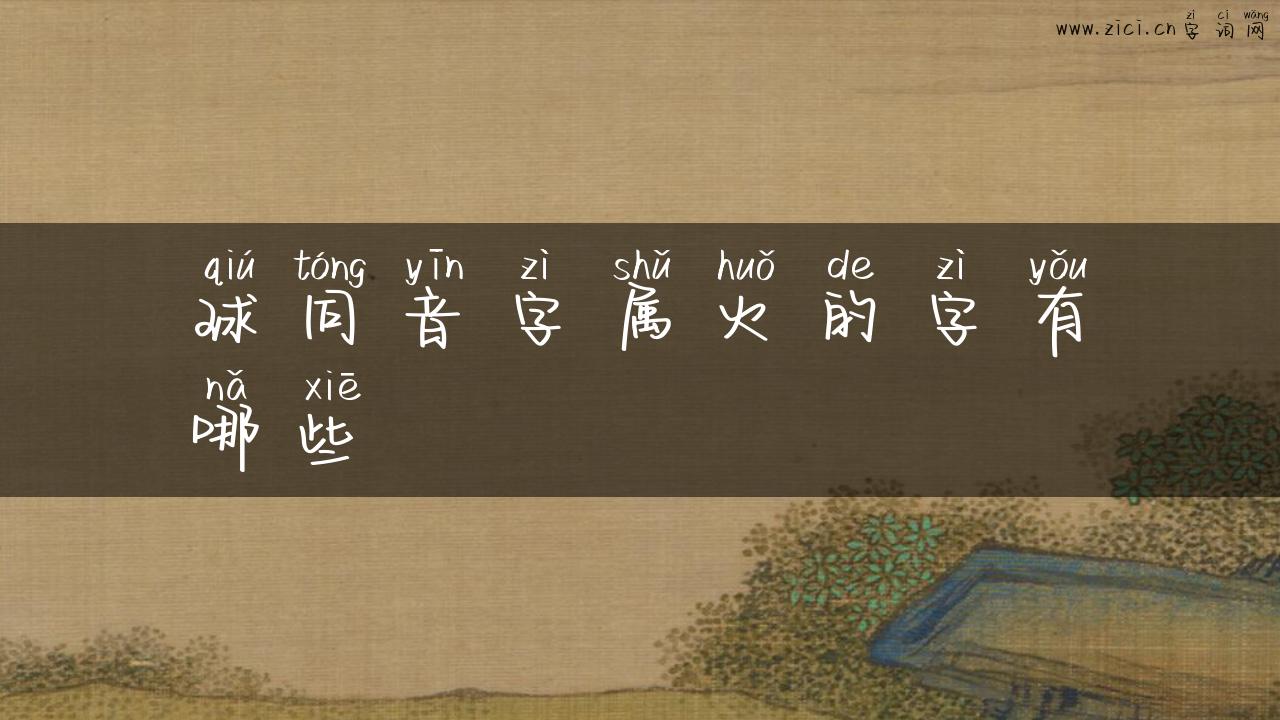 zì cí wǎng
www.zici.cn 字 词 网
qiú tóng yīn zì shǔ huǒ de zì yǒu
球 同 音 字 属 火 的 字 有
nǎ xiē
哪 些